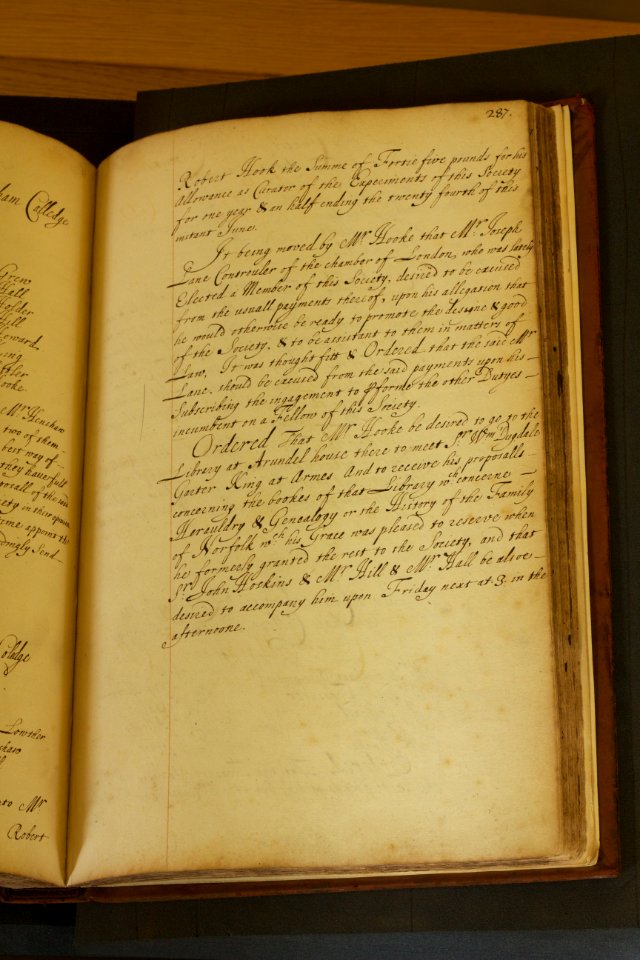 ham Colledge
Grew
Hall
Holder
Hill
ooke
Mr Henshaw
two of them
best way of
they have full
posall of the
ety in their
me appoint th
dingly Send
Colledge
Lowther
shaw
to Mr
Robert
287.
Robert Hook the Summe of Fortie five pounds for his
Allowance as Curator of the Experiments of this Society
for one year & an half ending the twenty fourth of this
instant June.
It being moved by Mr. Hooke that Mr. Joseph
Lane Controuler of the chamber of London, who was lately
Elected a Member of this Society, desired to be excused
from the usuall payments thereof, upon his allegation that
he would otherwise be ready to promote the designe & good
of the Society, & to be assistant to them in matters of
Law, It was thought fitt & Ordered that the said Mr
Lane, should be excused from the said payments upon his
Subscribing the ingagement to pforme the other Dutyes
incumbent on a Fellow of this Society.
Ordered That Mr Hooke be desired to go to the
Library at Arundel house there to meet Sr. Wm Dugdale
Garter King at Armes And to receive his proposalls
concerning the bookes of that Library wch concerne
Herauldry & Genealogy or the History of the Family
of Norfolk wch his Grace was pleased to reserve when
he formerly granted the rest to the Society, and that
Sr. John Hoskins & Mr Hill & Mr. Hall be alsoe
desired to accompany him upon Friday next at 3. in the
afternoone.